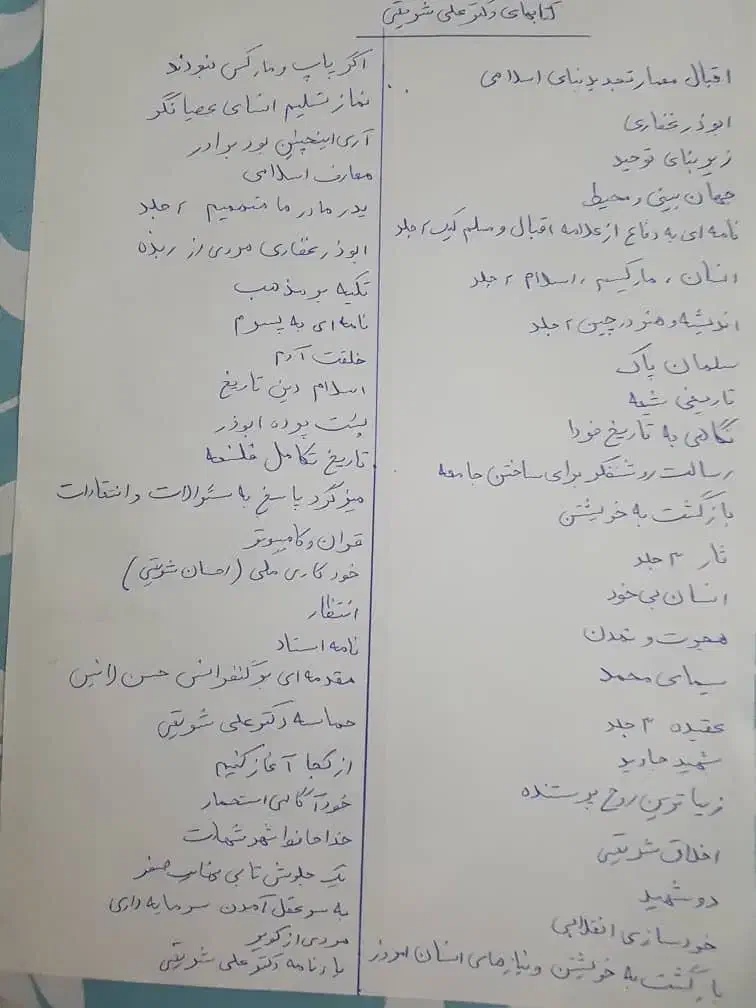 کتابهای دکتر علی شریعتی
اقبال معمار تجدید بنای اسلامی
ابوذر غفاری
زیر بنای توحید
جهان بینی و محیط
نامه ای به دفاع از علامه اقبال و مسلم لیگ ۲ جلد
انسان ، مارکسیسم ، اسلام ۲ جلد
اندیشه و هنر در چین ۲ جلد
سلمان پاک
تاریخی شیعه
نگاهی به تاریخ فردا
رسالت روشنفکر برای ساختن جامعه
بازگشت به خویشتن
ثار ۳ جلد
انسان بی خود
هجرت و تمدن
سیمای محمد
عقیده ۳ جلد
شهید جاوید
زیباترین روح پرستنده
اخلاق شریعتی
دو شهید
خودسازی انقلابی
بازگشت به خویشتن و نیازهای انسان امروز
اگر پاپ و مارکس نبودند
نماز تسلیم انسای عصیانگر
آری اینچنین بود برادر
معارف اسلامی
پدر مادر ما متهمیم ۲ جلد
ابوذر غفاری مردی از ربذه
تکیه بر مذهب
نامه ای به پسرم
خلقت آدم
اسلام دین تاریخ
پشت پرده ابوذر
تاریخ تکامل فلسفه
میزگرد پاسخ به سئوالات و انتقادات
قرآن و کامپیوتر
خود کاری ملی (احسان شریعتی)
انتظار
نامه استاد
مقدمه ای بر کنفرانس حسن
حماسه دکتر علی شریعتی
از کجا آغاز کنیم
خودآگاهی استحمار
خداحافظ شهر شهادت
یک جلوش تا بی نهایت صفر
به سر عقل آمدن سرمایه داری
مردی از کویر
یادنامه دکتر علی شریعتی